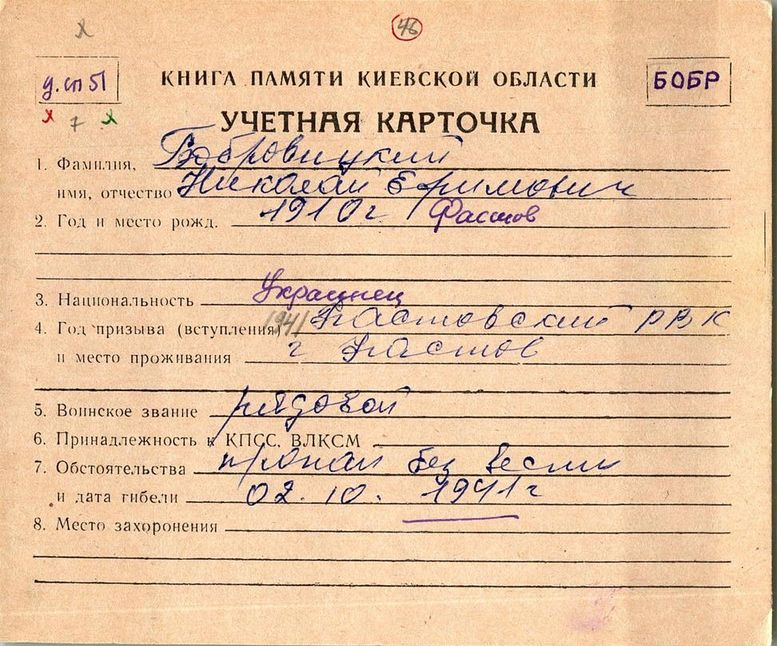 х
46
д.сп 51
КНИГА ПАМЯТИ КИЕВСКОЙ ОБЛАСТИ
БОБР
х 7 х
УЧЕТНАЯ КАРТОЧКА
1. Фамилия, Бобровицкий
имя, отчество Николай Ефимович
2. Год и место рожд. 1910 г Фастов
3. Национальность Украинец
4. Год призыва (вступления) 1941 Фастовский РВК
и место проживания г Фастов
5. Воинское звание рядовой
6. Принадлежность к КПСС, ВЛКСМ
7. Обстоятельства пропал без вести
и дата гибели 02.10.1941 г
8. Место захоронения